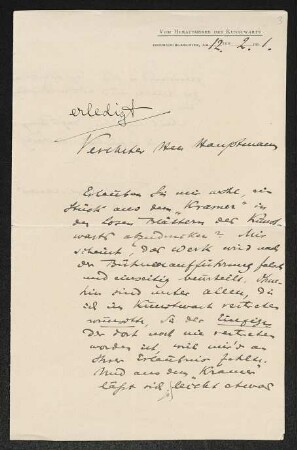 VOM HERAUSGEBER DES KUNSTWARTS
12. 2. 1.
erledigt
Verehrter Herr Hauptmann
Erlauben Sie mir wohl, ein
Stück aus dem "Kramer" in
den losen Blättern des Kunst-
warts abzudrucken? Mir
scheint, das Werk wird nach
der Bühnenaufführung falsch
und einseitig beurteilt.
sind unter allen, die
ich im Kunstwart vertreten
Sie der Einzige
der dort noch nie vertreten
worden ist, weil mir's an
Ihrer Erlaubnis fehlte.
Und aus dem "Kramer"
läßt sich leicht etwas